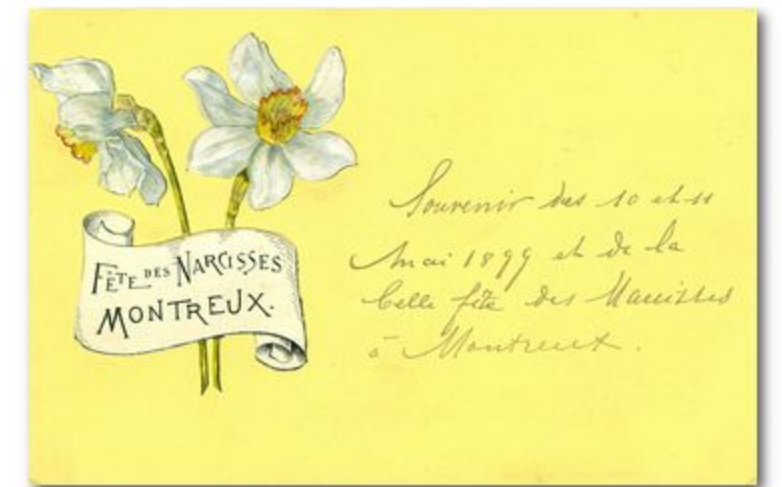 FÊTE DES NARCISSES
MONTREUX.
Souvenir des 10 et 11
Mai 1899 et de la
belle fête des Narcisses
à Montreux.